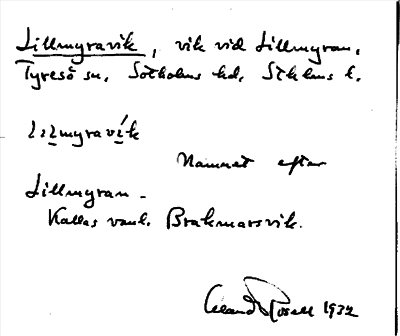 Lillmyravik, vik vid Lillmyran,
Tyresö sn, Sotholms hd, Sthlms l.
Lilmyravík
Namnet efter
Lillmyran.
Kallas vanl. Brakmarsvik.
Rosell 1932